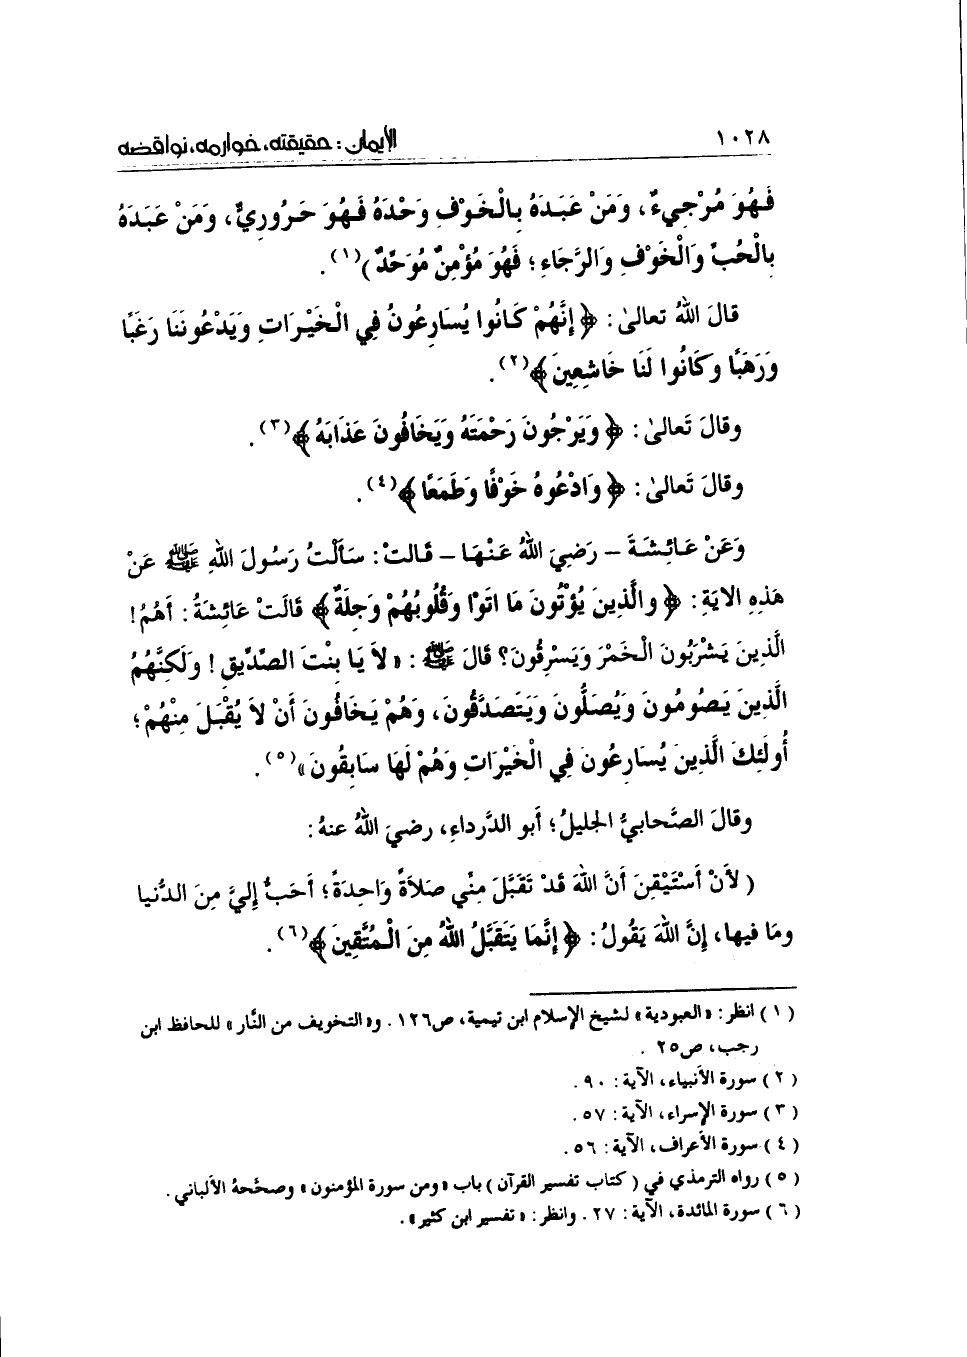 ١٠٢٨ الإيمان: حقيقته، خوارمه، نواقضه
فَهُوَ مُرْجِيءٌ، وَمَنْ عَبَدَهُ بِالْخَوْفِ وَحْدَهُ فَهُوَ حَرُورِيٌّ، وَمَنْ عَبَدَهُ
بِالْحُبِّ وَالْخَوْفِ وَالرَّجَاءِ؛ فَهُوَ مُؤْمِنٌ مُوَحِّدٌ)(١).
قالَ اللهُ تعالىٰ: ﴿ إِنَّهُمْ كَانُوا يُسَارِعُونَ فِي الْخَيْرَاتِ وَيَدْعُونَنَا رَغَبًا
وَرَهَبًا وَكَانُوا لَنَا خَاشِعِينَ﴾(٢).
وقالَ تَعالىٰ: ﴿ وَيَرْجُونَ رَحْمَتَهُ وَيَخَافُونَ عَذَابَهُ ﴾(٣).
وقالَ تَعالىٰ: ﴿ وَادْعُوهُ خَوْفًا وَطَمَعًا ﴾(٤).
وَعَنْ عَائِشَةَ – رَضِيَ اللهُ عَنْهَا – قَالتْ: سَأَلْتُ رَسُولَ اللهِ ﷺ عَنْ
هَذِهِ الايَةِ: ﴿ والَّذِينَ يُؤْتُونَ مَا اتَوْا وَقُلُوبُهُمْ وَجِلَةٌ﴾ قَالَتْ عَائِشَةُ: أَهُمُ!
الَّذِينَ يَشْرَبُونَ الْخَمْرَ وَيَسْرِقُونَ؟ قالَ ﷺ: «لاَ يَا بِنْتَ الصِّدِّيقِ! وَلَكِنَّهُمُ
الَّذِينَ يَصُومُونَ وَيُصَلُّونَ وَيَتَصَدَّقُونَ، وَهُمْ يَخَافُونَ أَنْ لاَ يُقْبَلَ مِنْهُمْ؛
أُولَئِكَ الَّذِينَ يُسَارِعُونَ فِي الْخَيْرَاتِ وَهُمْ لَهَا سَابِقُونَ»(٥).
وقالَ الصَّحابيُّ الجليلُ؛ أبو الدَّرداءِ، رضيَ اللهُ عنهُ:
( لأَنْ أَسْتَيْقِنَ أَنَّ اللهَ قَدْ تَقَبَّلَ مِنِّي صَلاَةً وَاحِدَةً؛ أَحَبُّ إِلَيَّ مِنَ الدُّنيا
ومَا فيها، إِنَّ اللهَ يَقُولُ: ﴿ إِنَّمَا يَتَقَبَّلُ اللهُ مِنَ الْمُتَّقِينَ ﴾(٦).
(١) انظر: «العبودية» لشيخ الإسلام ابن تيمية، ص١٢٦. و«التخويف من النَّار» للحافظ ابن
رجب، ص٢٥ .
(٢) سورة الأنبياء، الآية: ٩٠.
(٣) سورة الإسراء، الآية: ٥٧.
(٤) سورة الأعراف، الآية: ٥٦.
(٥) رواه الترمذي في (كتاب تفسير القرآن) باب «ومن سورة المؤمنون» وصحَّحهُ الألباني.
(٦) سورة المائدة، الآية: ٢٧. وانظر: «تفسير ابن كثير».